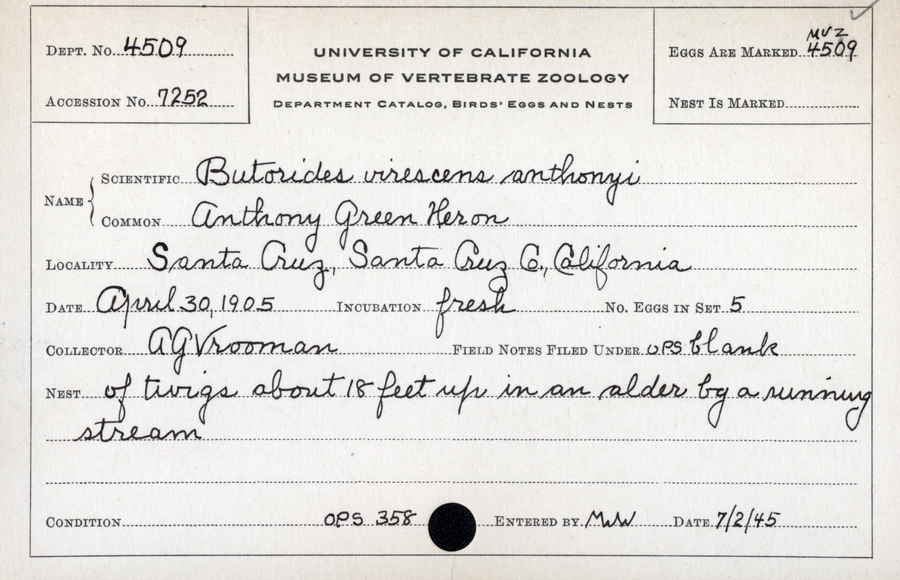 DEPT. No. 4509
ACCESSION No. 7252
UNIVERSITY OF CALIFORNIA
MUSEUM OF VERTEBRATE ZOOLOGY
DEPARTMENT CATALOG, BIRDS' EGGS AND NESTS
MVZ
EGGS ARE MARKED 4509
NEST IS MARKED
NAME
SCIENTIFIC Butorides virescens anthonyi
COMMON Anthony Green Heron
LOCALITY Santa Cruz, Santa Cruz C., California
DATE April 30, 1905 INCUBATION fresh No. EGGS IN SET 5
COLLECTOR AGVrooman FIELD NOTES FILED UNDER OPS blank
NEST of twigs about 18 feet up in an alder by a running
stream
CONDITION OPS 358 ENTERED BY MWW DATE 7/2/45